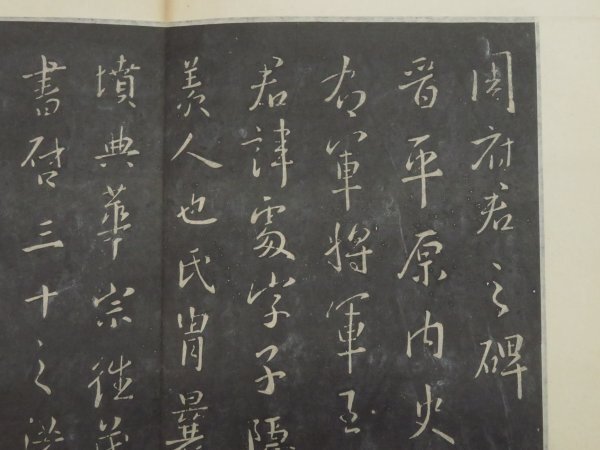 周府君之碑
晉平原内史
右軍將軍王
君諱處字子隱
羨人也氏胄曩
墳典華宗往
書啓三十之